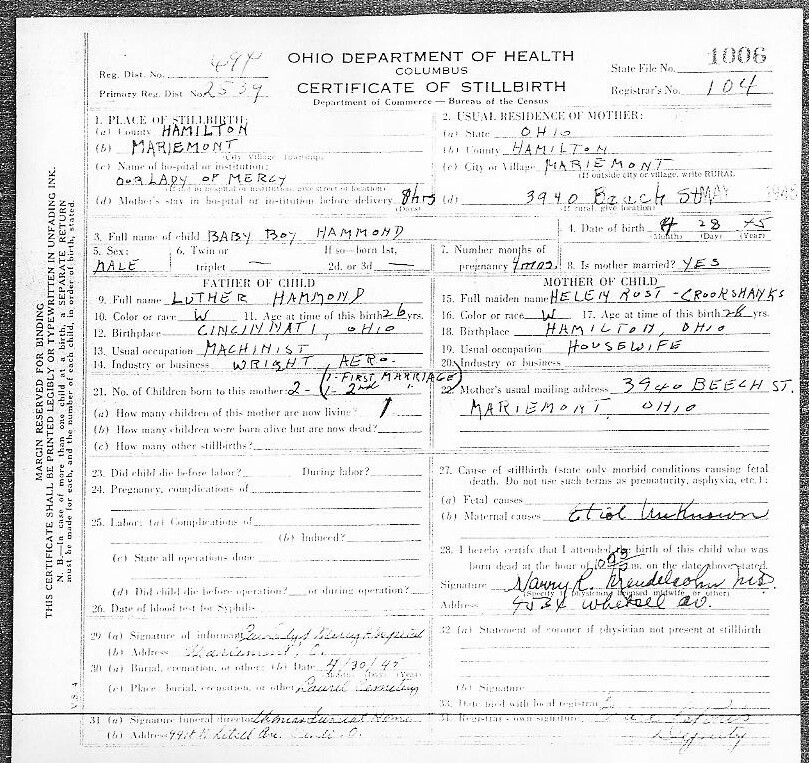 OHIO DEPARTMENT OF HEALTH
COLUMBUS
CERTIFICATE OF STILLBIRTH
Department of Commerce — Bureau of the Census
Reg. Dist. No. 494
Primary Reg. Dist No. 2539
State File No. 1006
Registrar's No. 104
MARGIN RESERVED FOR BINDING
THIS CERTIFICATE SHALL BE PRINTED LEGIBLY OR TYPEWRITTEN IN UNFADING INK.
N. B.—In case of more than one child at a birth, a SEPARATE RETURN
must be made for each, and the number of each child, in order of birth, stated.
1. PLACE OF STILLBIRTH:
(a) County HAMILTON
(b) MARIEMONT
(City Village Township)
(c) Name of hospital or institution:
OUR LADY OF MERCY
(If not in hospital or institution, give street or location)
(d) Mother's stay in hospital or institution before delivery 8 hrs
(Days)
2. USUAL RESIDENCE OF MOTHER:
(a) State OHIO
(b) County HAMILTON
(c) City or Village MARIEMONT
(If outside city or village, write RURAL
(d) 3940 Beech St MAY 1945
(If rural, give location)
3. Full name of child BABY BOY HAMMOND
4. Date of birth 4 28 45
(Month) (Day) (Year)
5. Sex: MALE
6. Twin or triplet —
If so—born 1st, 2d. or 3d —
7. Number months of pregnancy 4 mos.
8. Is mother married? YES
FATHER OF CHILD
9. Full name LUTHER HAMMOND
10. Color or race W 11. Age at time of this birth 26 yrs.
12. Birthplace CINCINNATI, OHIO
13. Usual occupation MACHINIST
14. Industry or business WRIGHT AERO.
MOTHER OF CHILD
15. Full maiden name HELEN RUST - CROOKSHANKS
16. Color or race W 17. Age at time of this birth 28 yrs.
18. Birthplace HAMILTON, OHIO
19. Usual occupation HOUSEWIFE
20. Industry or business
21. No. of Children born to this mother: 2 - (1 - FIRST MARRIAGE)
1 - 2nd "
(a) How many children of this mother are now living? 1
(b) How many children were born alive but are now dead?
(c) How many other stillbirths?
22. Mother's usual mailing address 3940 BEECH ST.
MARIEMONT, OHIO
23. Did child die before labor? During labor?
24. Pregnancy, complications of
25. Labor: (a) Complications of
(b) Induced?
(c) State all operations done
(d) Did child die before operation? or during operation?
26. Date of blood test for Syphilis
27. Cause of stillbirth (state only morbid conditions causing fetal
death. Do not use such terms as prematurity, asphyxia, etc.):
(a) Fetal causes
(b) Maternal causes Etiol Unknown
28. I hereby certify that I attended the birth of this child who was
born dead at the hour of m. on the date above stated.
Signature Harry R. Mendelsohn M.D.
(Specify if physician, licensed midwife, or other)
Address 4534 Whetsell Av.
29 (a) Signature of informant Our Lady of Mercy Hospital
(b) Address Mariemont, O.
30 (a) Burial, cremation, or other: (b) Date 4/30/45
(Month) (Day) (Year)
(c) Place burial, cremation, or other Laurel Cemetery
31 (a) Signature funeral director Thomas Funeral Home
(b) Address Whetsell Ave.
32 (a) Statement of coroner if physician not present at stillbirth
(b) Signature
33. Date filed with local registrar
34. Registrar's own signature
Deputy
V S 4